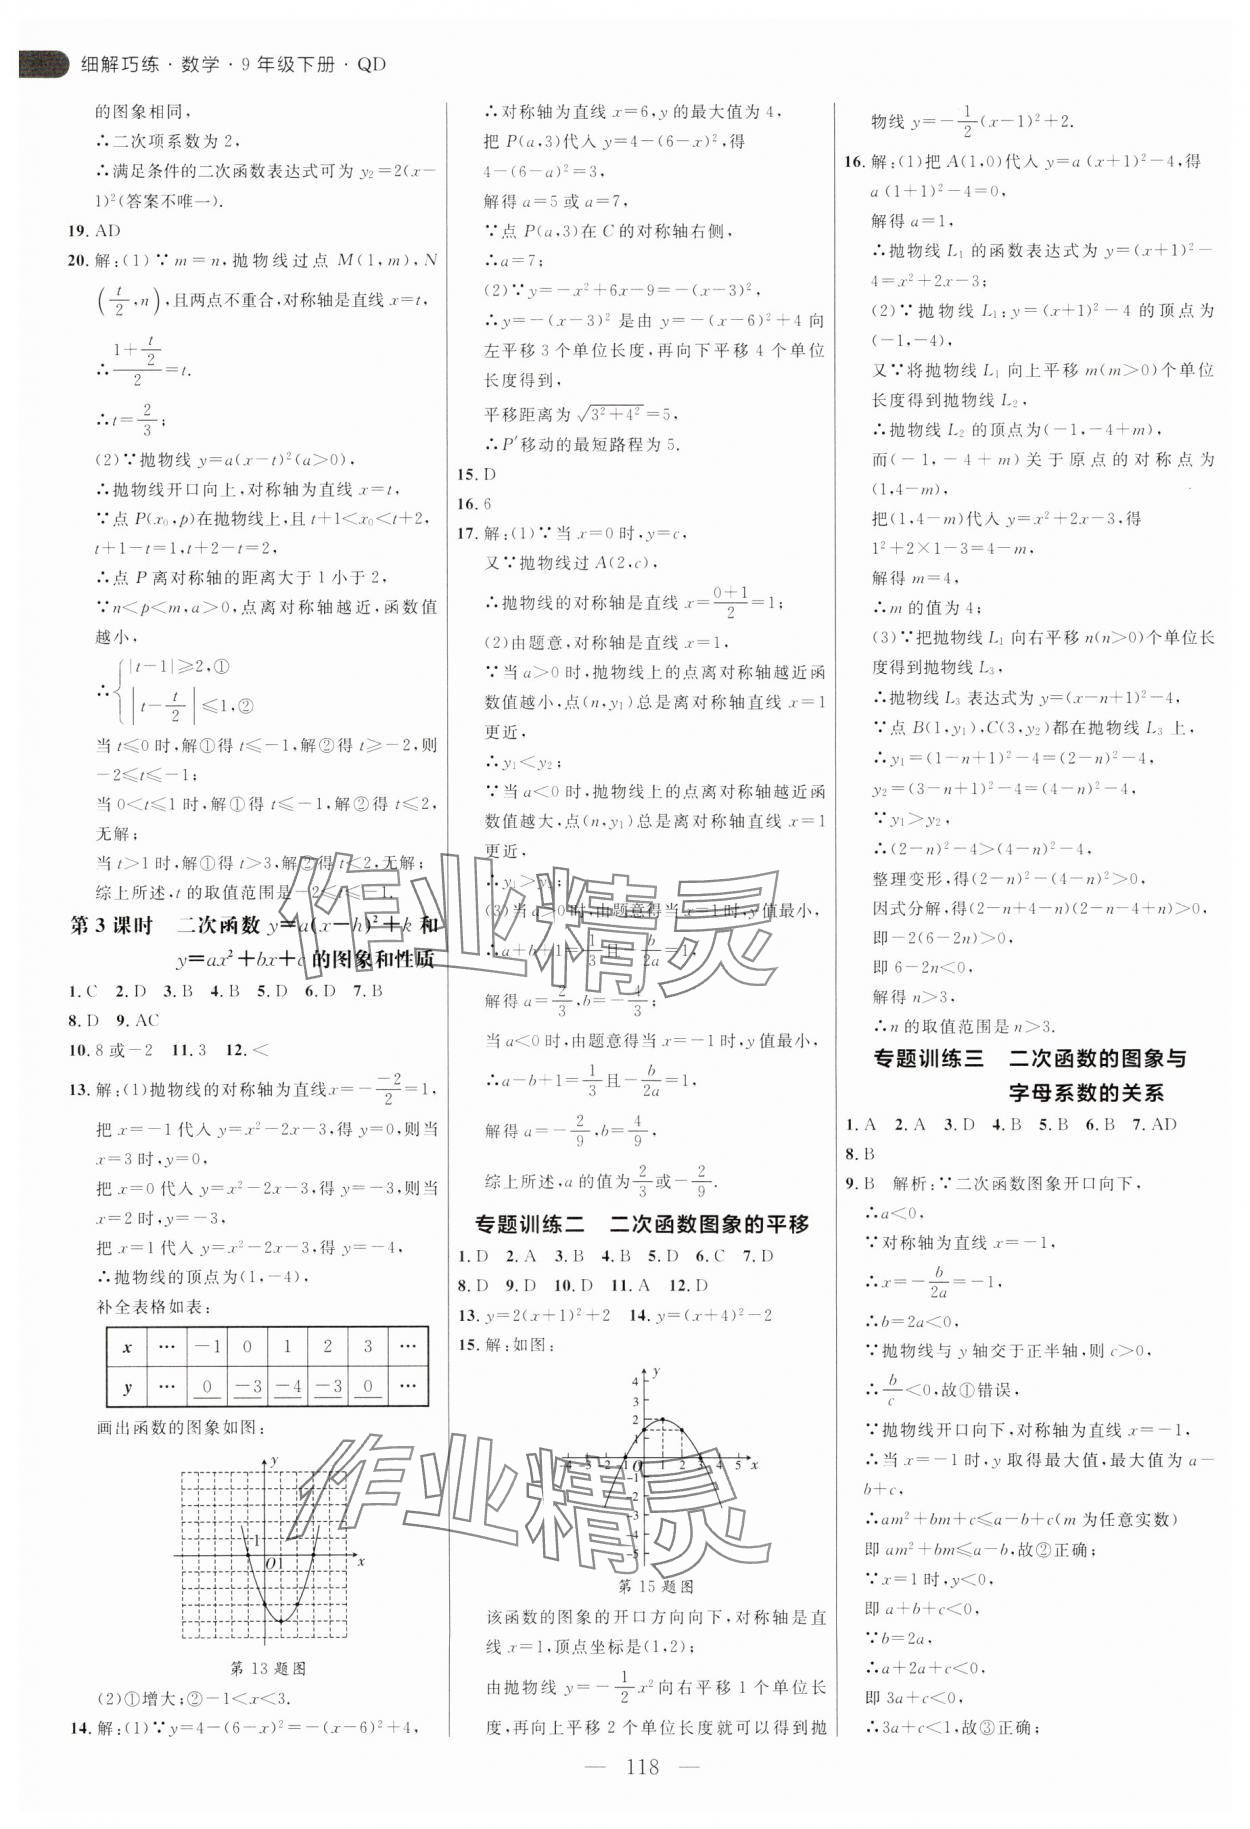 细解巧练·数学·9年级下册·QD
的图象相同,
∴二次项系数为2,
∴满足条件的二次函数表达式可为 y₂=2(x-
1)²(答案不唯一).
19. AD
20. 解:(1)∵m=n,抛物线过点M(1,m),N
(t/2,n),且两点不重合,对称轴是直线x=t,
∴(1+t/2)/2=t.
∴t=2/3;
(2)∵抛物线y=a(x-t)²(a>0),
∴抛物线开口向上,对称轴为直线x=t,
∵点P(x₀,p)在抛物线上,且t+1<x₀<t+2,
t+1-t=1,t+2-t=2,
∴点P离对称轴的距离大于1小于2,
∵n<p<m,a>0,点离对称轴越近,函数值
越小,
∴{|t-1|≥2,①
|t-t/2|≤1,②
当t≤0时,解①得t≤-1,解②得t≥-2,则
-2≤t≤-1;
当0<t≤1时,解①得t≤-1,解②得t≤2,
无解;
当t>1时,解①得t≥3,解②得t≤2,无解;
综上所述,t的取值范围是-2≤t≤-1.
第3课时 二次函数y=a(x-h)²+k和
y=ax²+bx+c的图象和性质
1. C 2. D 3. B 4. B 5. D 6. D 7. B
8. D 9. AC
10. 8或-2 11. 3 12. <
13. 解:(1)抛物线的对称轴为直线x=-(-2)/2=1,
把x=-1代入y=x²-2x-3,得y=0,则当
x=3时,y=0,
把x=0代入y=x²-2x-3,得y=-3,则当
x=2时,y=-3,
把x=1代入y=x²-2x-3,得y=-4,
∴抛物线的顶点为(1,-4),
补全表格如表:
x … -1 0 1 2 3 …
y … 0 -3 -4 -3 0 …
画出函数的图象如图:
y
-1
O 1
x
第13题图
(2)①增大;②-1<x<3.
14. 解:(1)∵y=4-(6-x)²=-(x-6)²+4,
∴对称轴为直线x=6,y的最大值为4,
把P(a,3)代入y=4-(6-x)²,得
4-(6-a)²=3,
解得a=5或a=7,
∵点P(a,3)在C的对称轴右侧,
∴a=7;
(2)∵y=-x²+6x-9=-(x-3)²,
∴y=-(x-3)²是由y=-(x-6)²+4向
左平移3个单位长度,再向下平移4个单位
长度得到,
平移距离为√(3²+4²)=5,
∴P′移动的最短路程为5.
15. D
16. 6
17. 解:(1)∵当x=0时,y=c,
又∵抛物线过A(2,c),
∴抛物线的对称轴是直线x=(0+1)/2=1;
(2)由题意,对称轴是直线x=1,
∵当a>0时,抛物线上的点离对称轴越近函
数值越小,点(n,y₁)总是离对称轴直线x=1
更近,
∴y₁<y₂;
∵当a<0时,抛物线上的点离对称轴越近函
数值越大,点(n,y₁)总是离对称轴直线x=1
更近,
∴y₁>y₂;
(3)当a>0时,由题意得当x=1时,y值最小,
∴a+b+1=1/3且-b/2a=1,
解得a=2/3,b=-4/3;
当a<0时,由题意得当x=-1时,y值最小,
∴a-b+1=1/3且-b/2a=1,
解得a=-2/9,b=4/9,
综上所述,a的值为2/3或-2/9.
专题训练二 二次函数图象的平移
1. D 2. A 3. B 4. B 5. D 6. C 7. D
8. D 9. D 10. D 11. A 12. D
13. y=2(x+1)²+2 14. y=(x+4)²-2
15. 解:如图:
y
4
3
2
1
-4 -3 -2 -1 O 1 2 3 4 5 x
-1
-2
-3
-4
-5
第15题图
该函数的图象的开口方向向下,对称轴是直
线x=1,顶点坐标是(1,2);
由抛物线y=-1/2x²向右平移1个单位长
度,再向上平移2个单位长度就可以得到抛
物线y=-1/2(x-1)²+2.
16. 解:(1)把A(1,0)代入y=a(x+1)²-4,得
a(1+1)²-4=0,
解得a=1,
∴抛物线L₁的函数表达式为y=(x+1)²-
4=x²+2x-3;
(2)∵抛物线L₁:y=(x+1)²-4的顶点为
(-1,-4),
又∵将抛物线L₁向上平移m(m>0)个单位
长度得到抛物线L₂,
∴抛物线L₂的顶点为(-1,-4+m),
而(-1,-4+m)关于原点的对称点为
(1,4-m),
把(1,4-m)代入y=x²+2x-3,得
1²+2×1-3=4-m,
解得m=4,
∴m的值为4;
(3)∵把抛物线L₁向右平移n(n>0)个单位长
度得到抛物线L₃,
∴抛物线L₃表达式为y=(x-n+1)²-4,
∵点B(1,y₁),C(3,y₂)都在抛物线L₃上,
∴y₁=(1-n+1)²-4=(2-n)²-4,
y₂=(3-n+1)²-4=(4-n)²-4,
∵y₁>y₂,
∴(2-n)²-4>(4-n)²-4,
整理变形,得(2-n)²-(4-n)²>0,
因式分解,得(2-n+4-n)(2-n-4+n)>0,
即-2(6-2n)>0,
即6-2n<0,
解得n>3,
∴n的取值范围是n>3.
专题训练三 二次函数的图象与
字母系数的关系
1. A 2. A 3. D 4. B 5. B 6. B 7. AD
8. B
9. B 解析:∵二次函数图象开口向下,
∴a<0,
∵对称轴为直线x=-1,
∴x=-b/2a=-1,
∴b=2a<0,
∵抛物线与y轴交于正半轴,则c>0,
∴b/c<0,故①错误,
∵抛物线开口向下,对称轴为直线x=-1,
∴当x=-1时,y取得最大值,最大值为a-
b+c,
∴am²+bm+c≤a-b+c(m为任意实数)
即am²+bm≤a-b,故②正确;
∵x=1时,y<0,
即a+b+c<0,
∵b=2a,
∴a+2a+c<0,
即3a+c<0,
∴3a+c<1,故③正确;
— 118 —
作业精灵
作业精灵